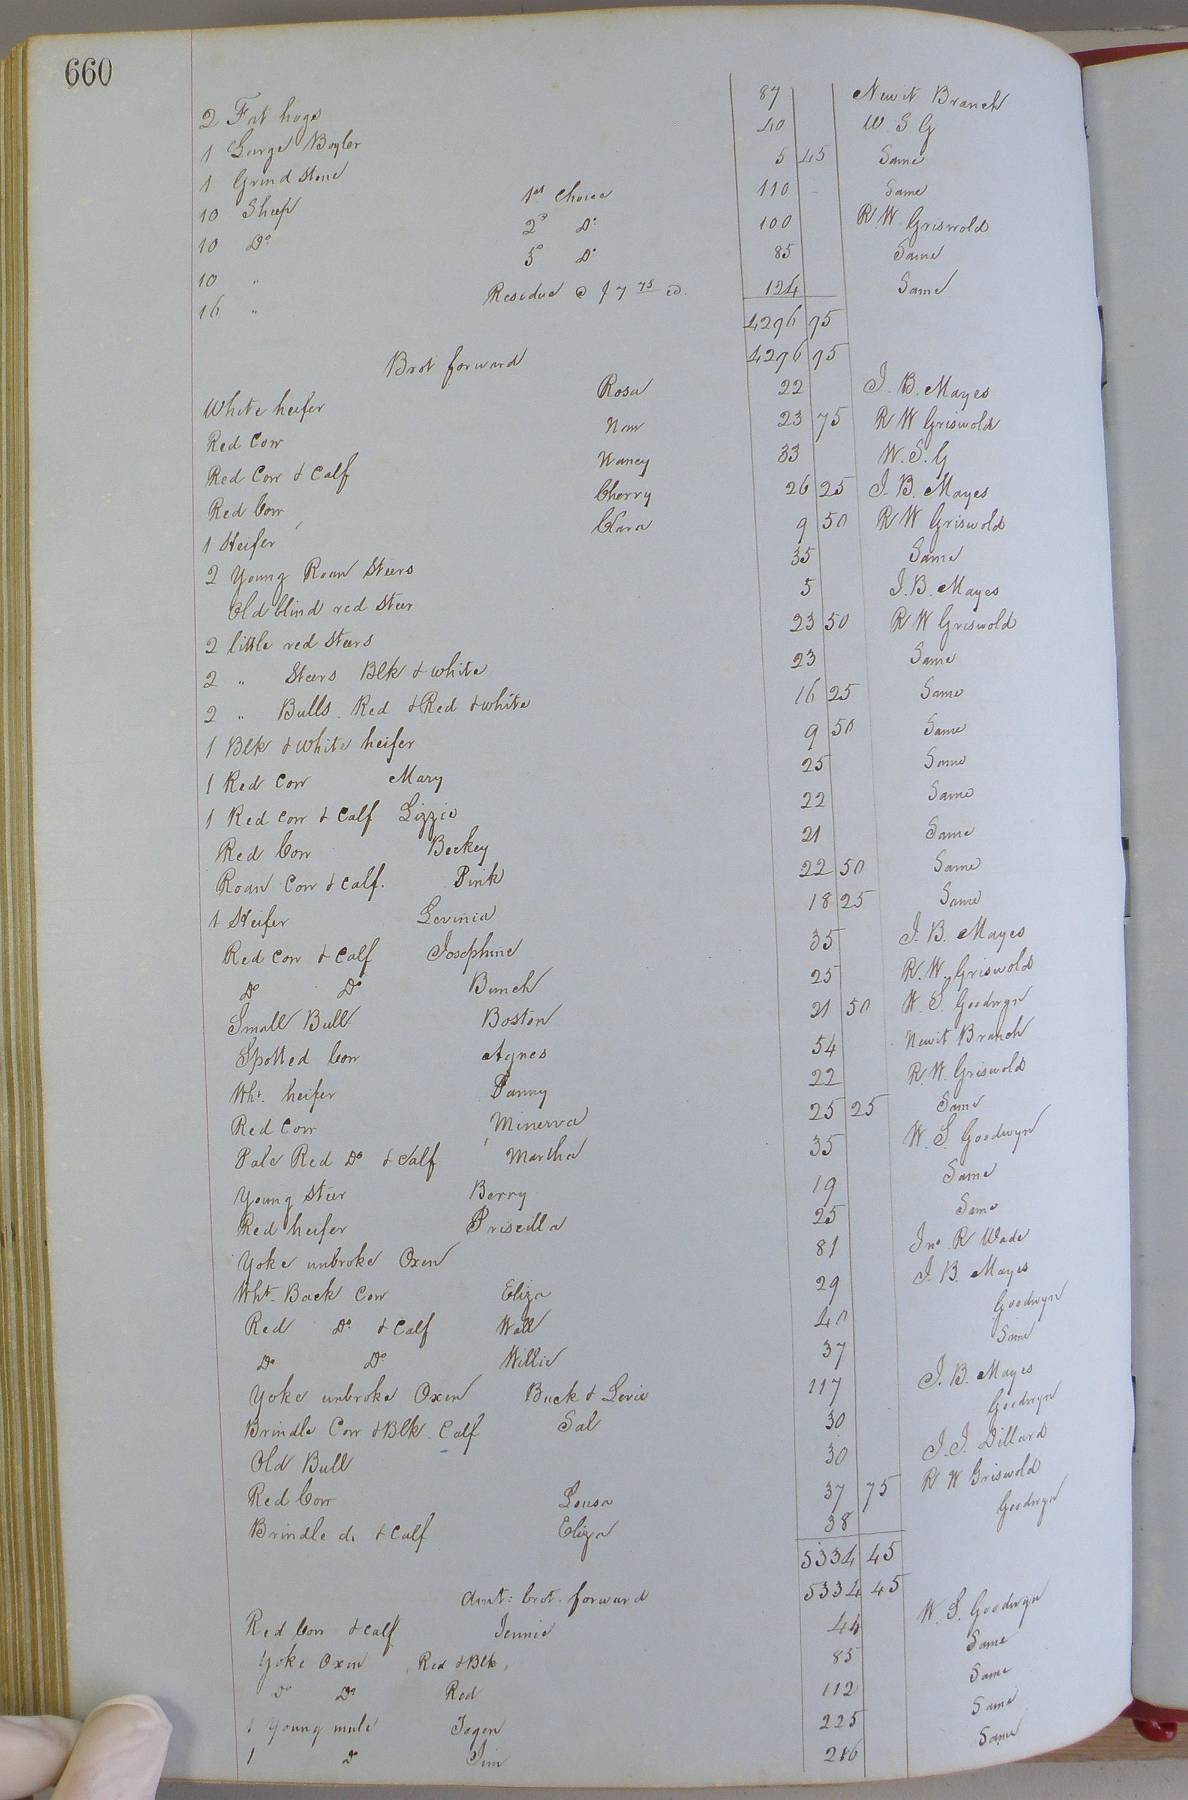 660
2 Fat hogs 87 Newit Branch
1 Large Boyler 40 W. S. G
1 Grind Stone 5 45 Same
10 Sheep 1st Choice 110 - Same
10 Do 2d Do 100 R. W. Griswold
10 " 3d Do 85 Same
16 " Residue @ $7 75 124 Same
4296 95
Brot forward 4296 95
White heifer Rosa 22 J. B. Mayes
Red Cow Nan 23 75 R W Griswold
Red Cow & Calf Nancy 33 W. S. G
Red Cow Cherry 26 25 J. B. Mayes
1 Heifer Clara 9 50 R W Griswold
2 Young Roan Steers 35 Same
Old blind red Steer 5 J. B. Mayes
2 little red Steers 23 50 R W Griswold
2 " Steers Blk & white 23 Same
2 " Bulls Red & Red & white 16 25 Same
1 Blk & white heifer 9 50 Same
1 Red Cow Mary 25 Same
1 Red Cow & Calf Lizzie 22 Same
Red Cow Beckey 21 Same
Roan Cow & Calf. Pink 22 50 Same
1 Heifer Levinia 18 25 Same
Red Cow & Calf Josephine 35 J. B. Mayes
Do Do Bunch 25 R. W. Griswold
Small Bull Boston 21 50 W. S. Goodwyn
Spotted Cow Agnes 54 Newit Branch
Wht. heifer Fanny 22 R. W. Griswold
Red Cow Minerva 25 25 Same
Pale Red Do & Calf Martha 35 W. S. Goodwyn
Young Steer Berry 19 Same
Red heifer Priscilla 25 Same
Yoke unbroke Oxen 81 Jno. R Wade
Wht. Back Cow Eliza 29 J. B. Mayes
Red Do & Calf Wall 40 Goodwyn
Do Do Willie 37 Same
Yoke unbroke Oxen Buck & Levie 117 J. B. Mayes
Brindle Cow & Blk. Calf Sal 30 Goodwyn
Old Bull 30 J. J. Dillard
Red Cow Lousa 37 75 R W Griswold
Brindle d. & Calf Eliza 38 Goodwyn
5334 45
Amt: brot. forward 5334 45
Red Cow & Calf Jennie 44 W. S. Goodwyn
Yoke Oxen Red & Blk, 85 Same
Do Do Red 112 Same
1 Young mule 225 Same
1 Do Jim 216 Same